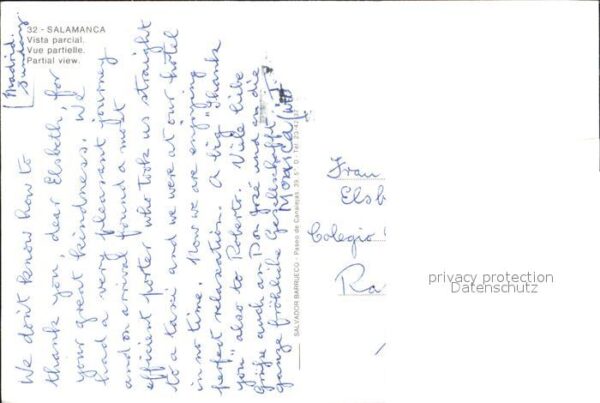 32 - SALAMANCA
Vista parcial.
Vue partielle.
Partial view.
Madrid.
Sunday.
We don't know how to
thank you, dear Elsbeth, for
your great kindness. We
had a very pleasant journey
and on arrival found a most
efficient porter who took us straight
to a taxi and we were at our hotel
in no time. Now we are enjoying
perfect relaxation. A big "thank
you" also to Roberto. Viele liebe
Grüße auch an Don José und an die
ganze fröhliche Gesellschaft.
Monica
SALVADOR BARRUECO - Paseo de Canalejas, 39
Frau
Elsb
Colegio
Ra
privacy protection
Datenschutz